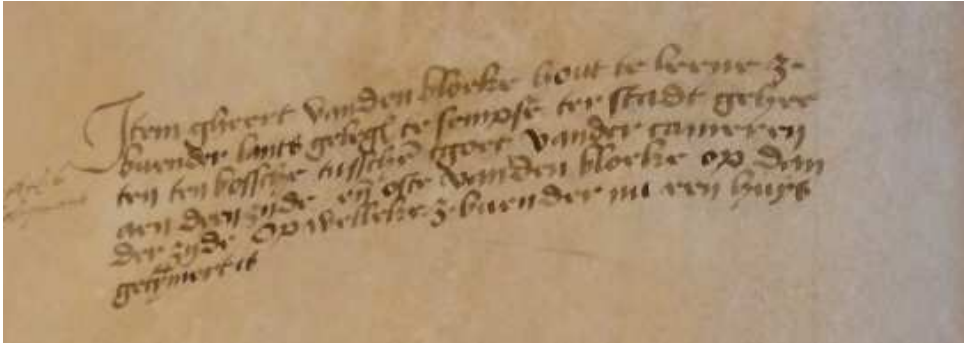 Item gheert vanden bloeke hout te leene 3
buender lants geleg̃ te sempse ter stadt gehee
ten ten bossche tusschẽ tgoet vander cameren
aen deen zijde eñ oste vanden bloeke op dan
der zijde Op welleke 3 buender nu een huys
getÿmert is